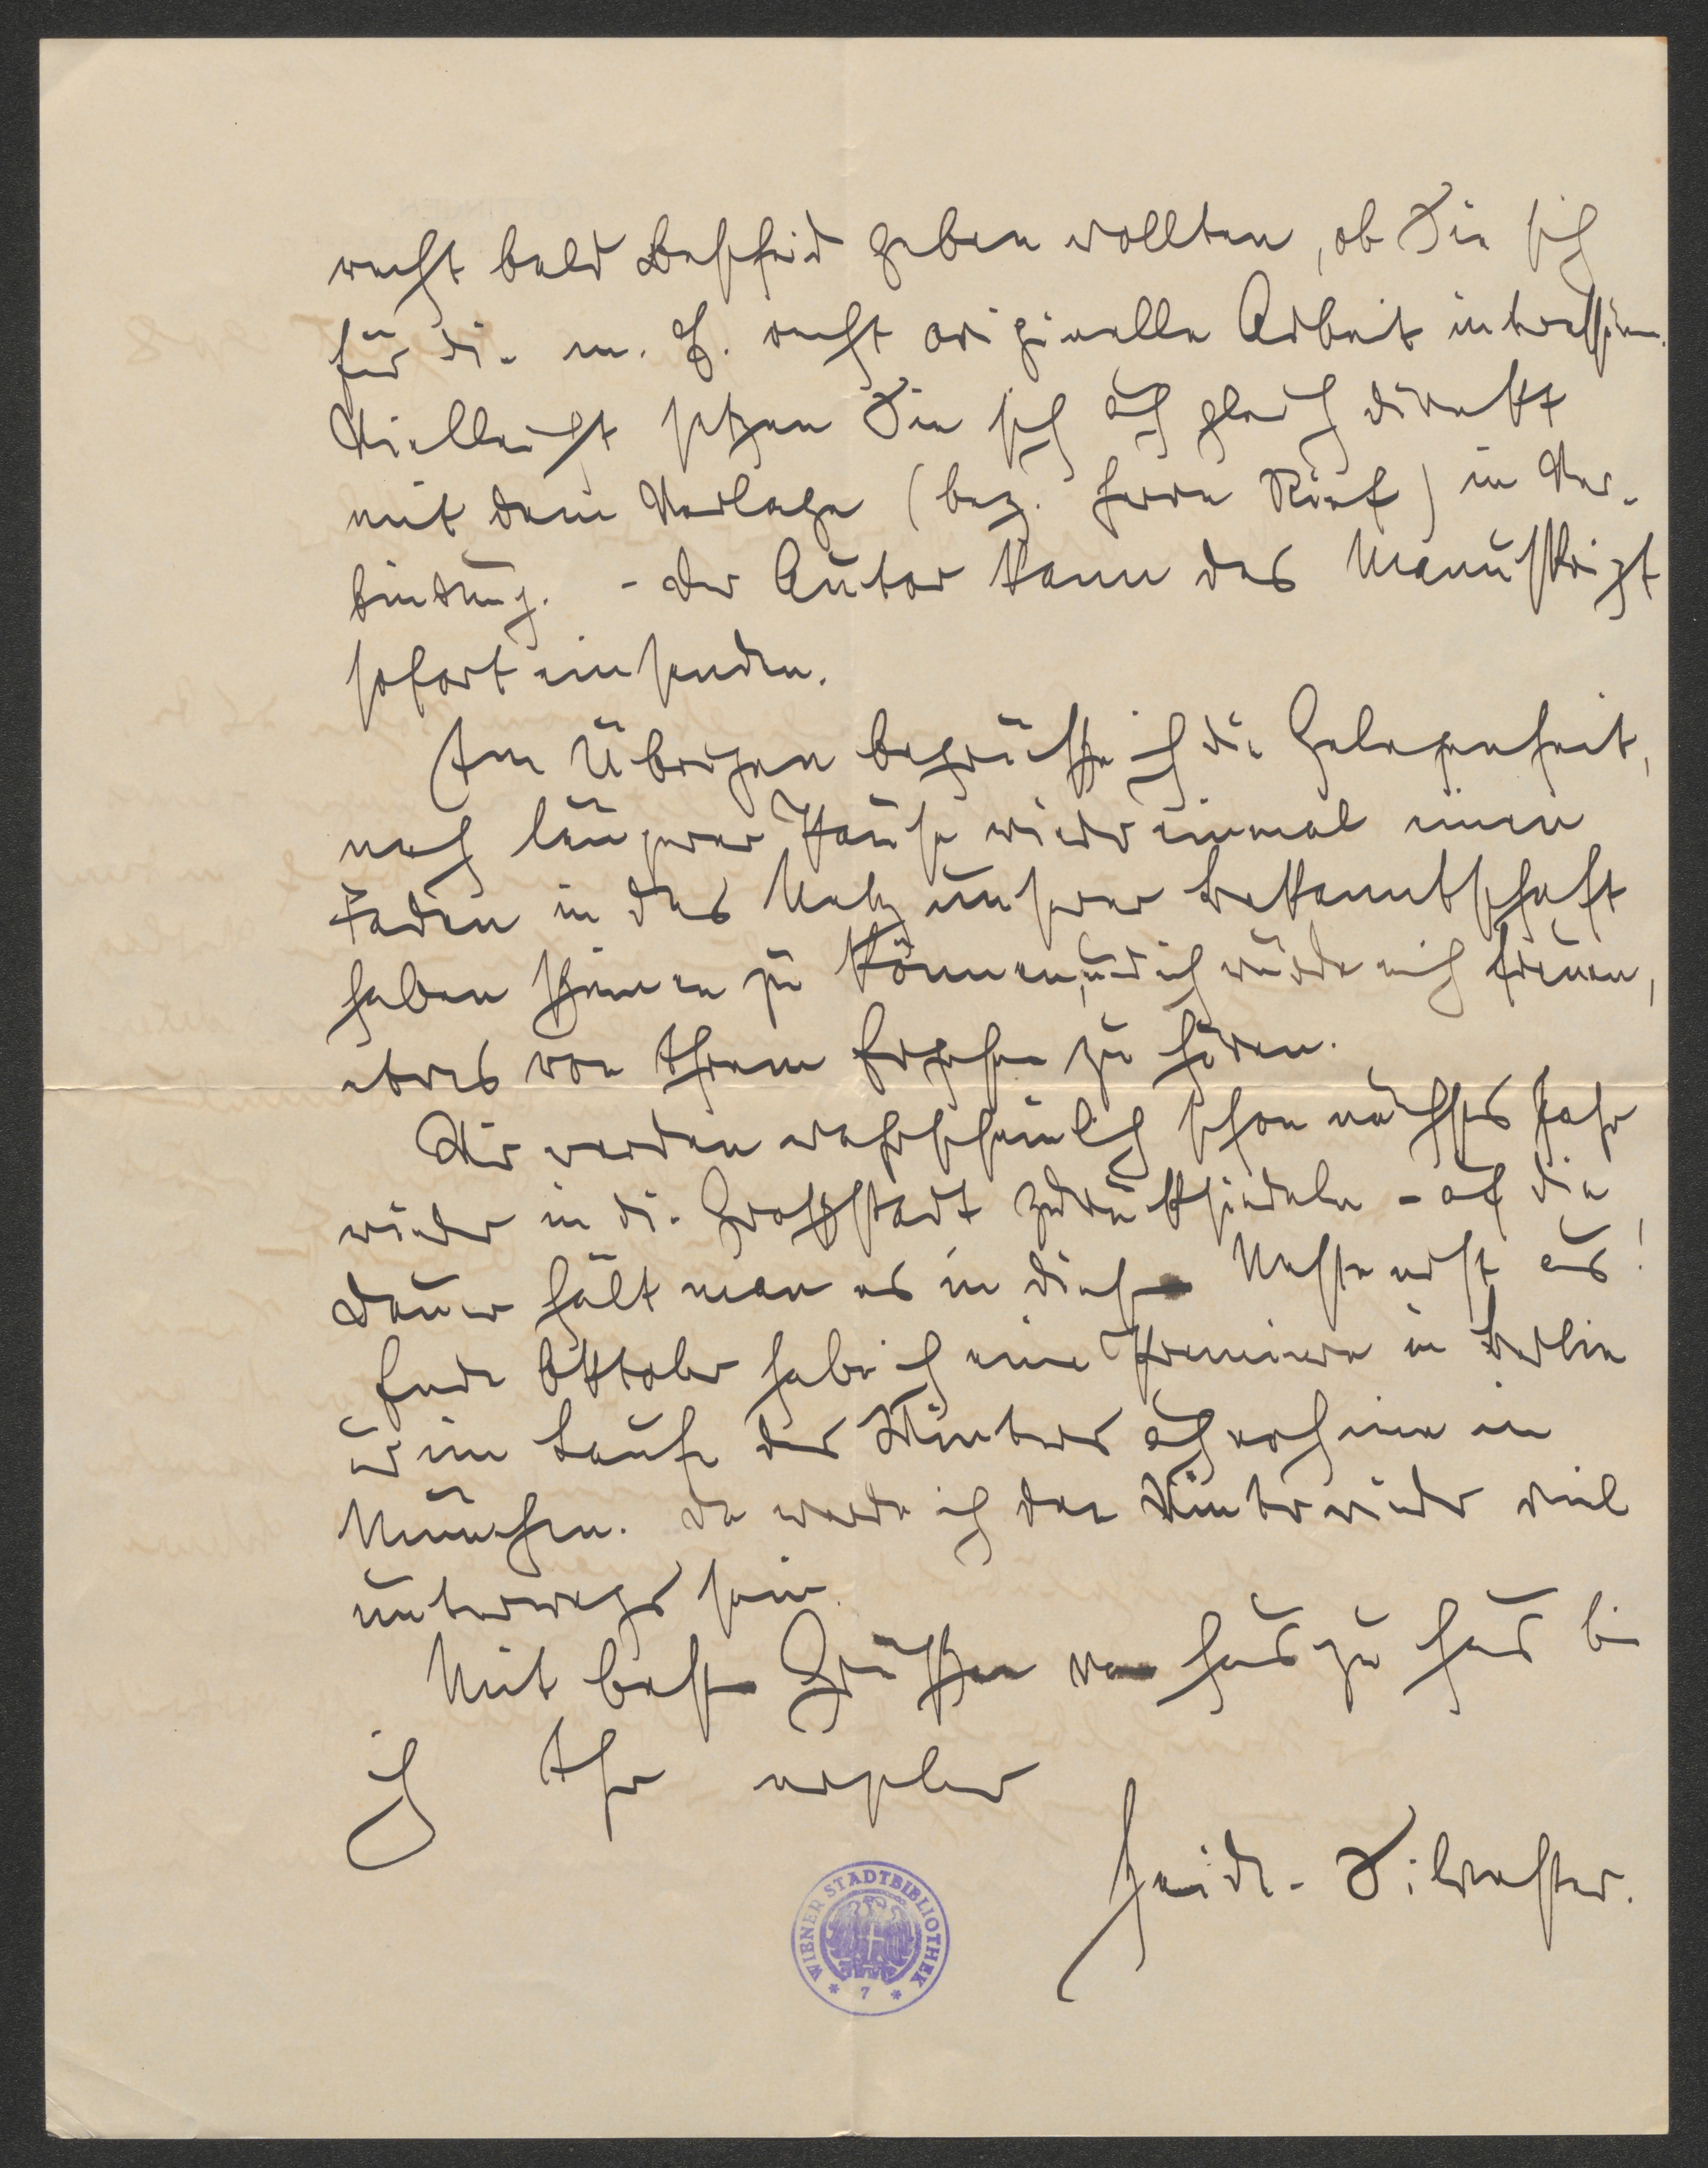 recht bald Bescheid geben wollten, ob Sie sich
für die m. E. recht originelle Arbeit interessieren.
Vielleicht setzen Sie sich auch gleich direkt
mit dem Verlage (bez. Herrn) in Ver-
bindung. - Der Autor kann das Manuskript
sofort einsenden.
Im Übrigen begrüsse ich die Gelegenheit,
nach längerer Pause wieder einmal einen
Faden in das Netz unserer Bekanntschaft
haben spinnen zu können, und ich würde mich freuen,
etwas von Ihrem Ergehen zu hören.
Wir werden wahrscheinlich schon nächstes Jahr
wieder in die Grossstadt zurücksiedeln - auf die
Dauer hält man es in diesem Neste nicht aus!
Ende Oktober habe ich eine Premiere in Berlin
und im Laufe des Winters auch noch eine in
München. Da werde ich den Winter wieder viel
unterwegs sein.
Mit besten Grüssen von Haus zu Haus bin
ich Ihr ergebener
WIENER STADTBIBLIOTHEK
* 7 *